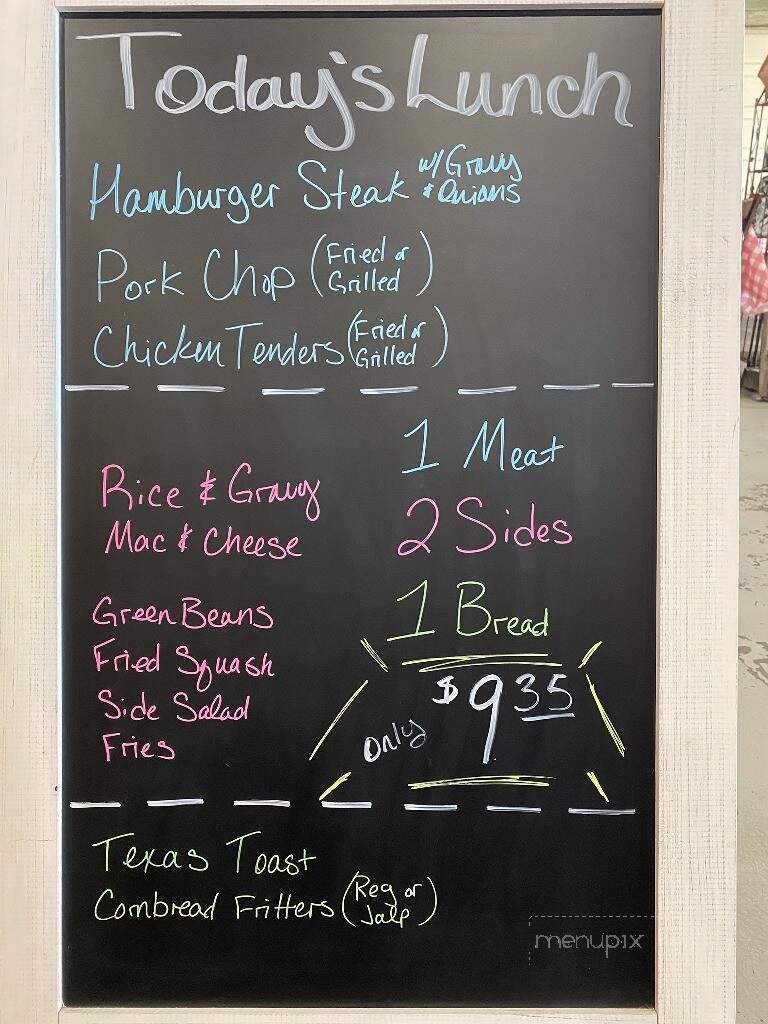 Today's Lunch
Hamburger Steak w/ Gravy & Onions
Pork Chop (Fried or Grilled)
Chicken Tenders (Fried or Grilled)
1 Meat
Rice & Gravy
2 Sides
Mac & Cheese
1 Bread
Green Beans
Fried Squash
Side Salad
Fries
only $9.35
Texas Toast
Cornbread Fritters (Reg or Jalp)
menupix